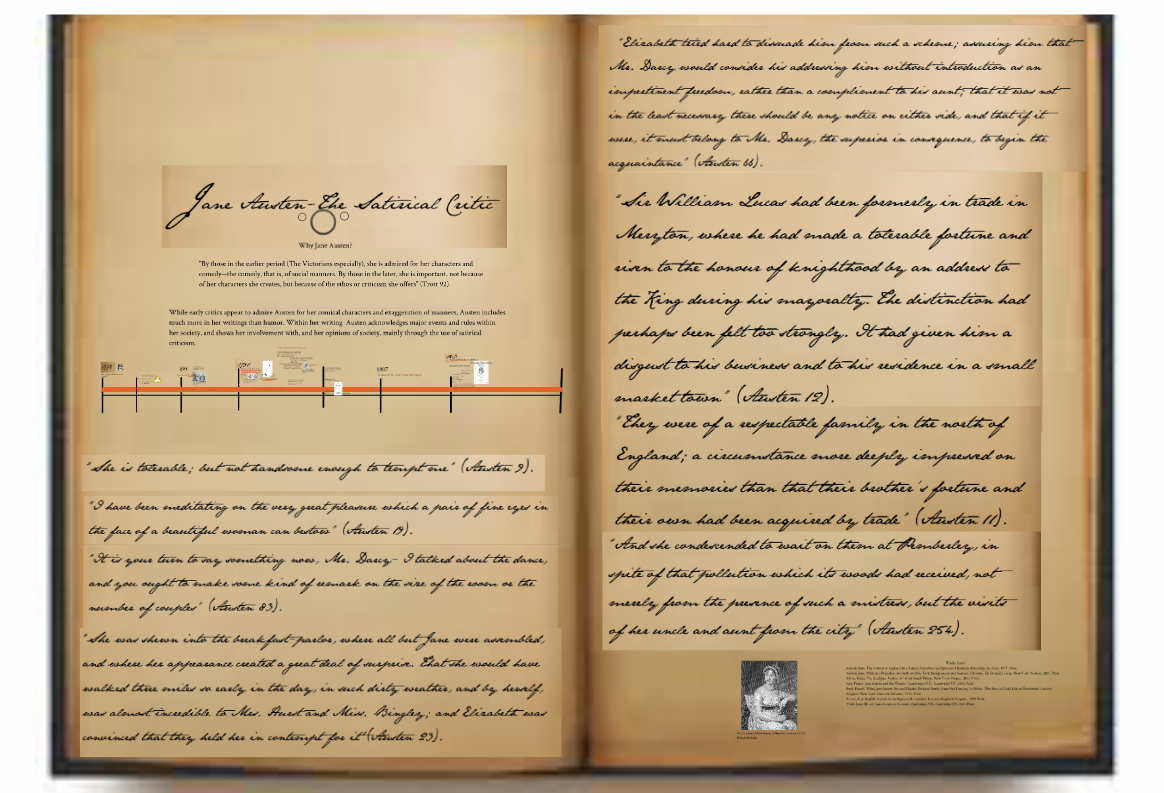 Jane Austen-The Satirical Critic
Why Jane Austen?
"By those in the earlier period (The Victorians especially), she is admired for her characters and
comedy--the comedy, that is, of social manners. By those in the later, she is important, not because
of her characters she creates, but because of the ethos or criticism she offers" (Trott 92).
While early critics appear to admire Austen for her comical characters and exaggeration of manners, Austen includes
much more in her writings than humor. Within her writing, Austen acknowledges major events and rules within
her society, and shows her involvement with, and her opinions of society, mainly through the use of satirical
criticism.
1807
"She is tolerable; but not handsome enough to tempt me" (Austen 9).
"I have been meditating on the very great pleasure which a pair of fine eyes in
the face of a beautiful woman can bestow" (Austen 19).
"It is your turn to say something now, Mr. Darcy- I talked about the dance,
and you ought to make some kind of remark on the size of the room or the
number of couples" (Austen 83).
"She was shewn into the breakfast-parlor, where all but Jane were assembled,
and where her appearance created a great deal of surprise. That she would have
walked three miles so early in the day, in such dirty weather, and by herself,
was almost incredible to Mrs. Hurst and Miss. Bingley; and Elizabeth was
convinced that they held her in contempt for it"(Austen 23).
"Elizabeth tried hard to dissuade him from such a scheme; assuring him that
Mr. Darcy would consider his addressing him without introduction as an
impertinent freedom, rather than a compliment to his aunt; that it was not
in the least necessary there should be any notice on either side, and that if it
were, it must belong to Mr. Darcy, the superior in consequence, to begin the
acquaintance" (Austen 66).
"Sir William Lucas had been formerly in trade in
Meryton, where he had made a tolerable fortune and
risen to the honour of knighthood by an address to
the King during his mayoralty. The distinction had
perhaps been felt too strongly. It had given him a
disgust to his business and to his residence in a small
market town" (Austen 12).
"They were of a respectable family in the north of
England; a circumstance more deeply impressed on
their memories than that their brother's fortune and
their own had been acquired by trade" (Austen 11).
"And she condescended to wait on them at Pemberley, in
spite of that pollution which its woods had received, not
merely from the presence of such a mistress, but the visits
of her uncle and aunt from the city" (Austen 254).
Works Cited